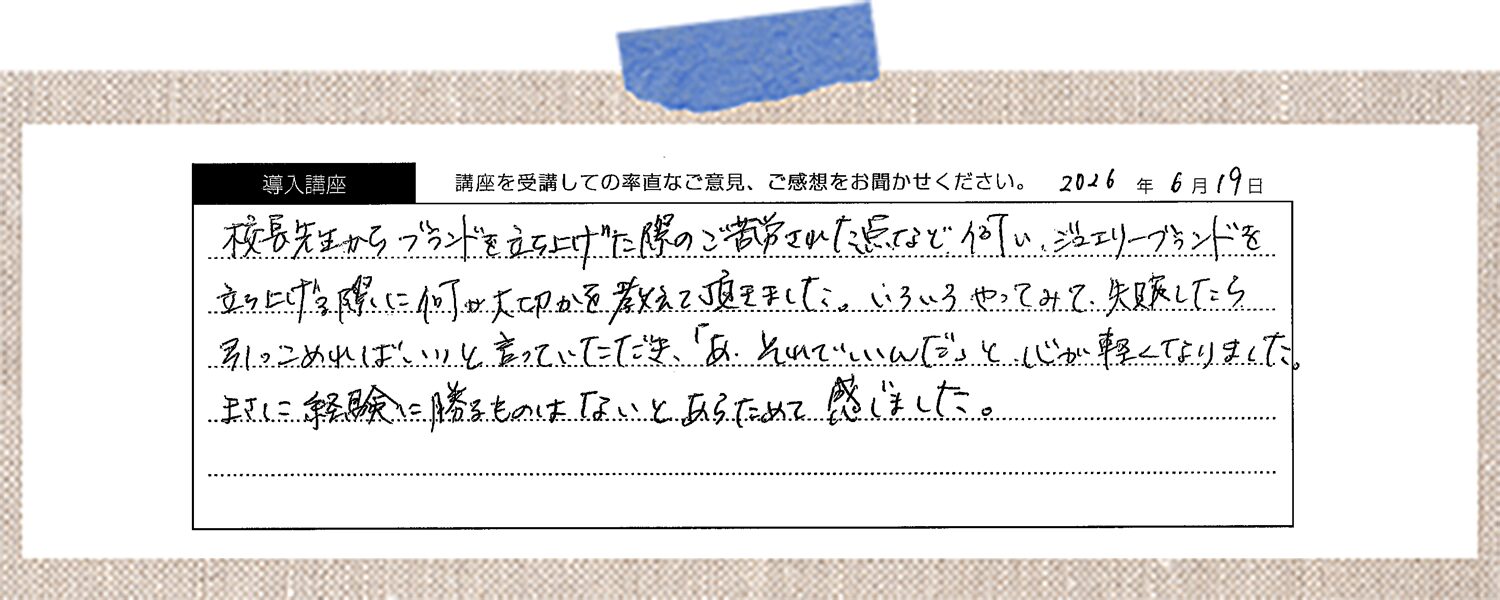 導入講座 講座を受講しての率直なご意見、ご感想をお聞かせください。 2026年6月19日
校長先生からブランドを立ち上げた際のご苦労された点など伺い、ジュエリーブランドを
立ち上げる際に何が大切かを教えて頂きました。いろいろやってみて、失敗したら
引っこめればいいと言っていただき、「あ、それでいいんだ」と、心が軽くなりました。
まさに経験に勝るものはないとあらためて感じました。